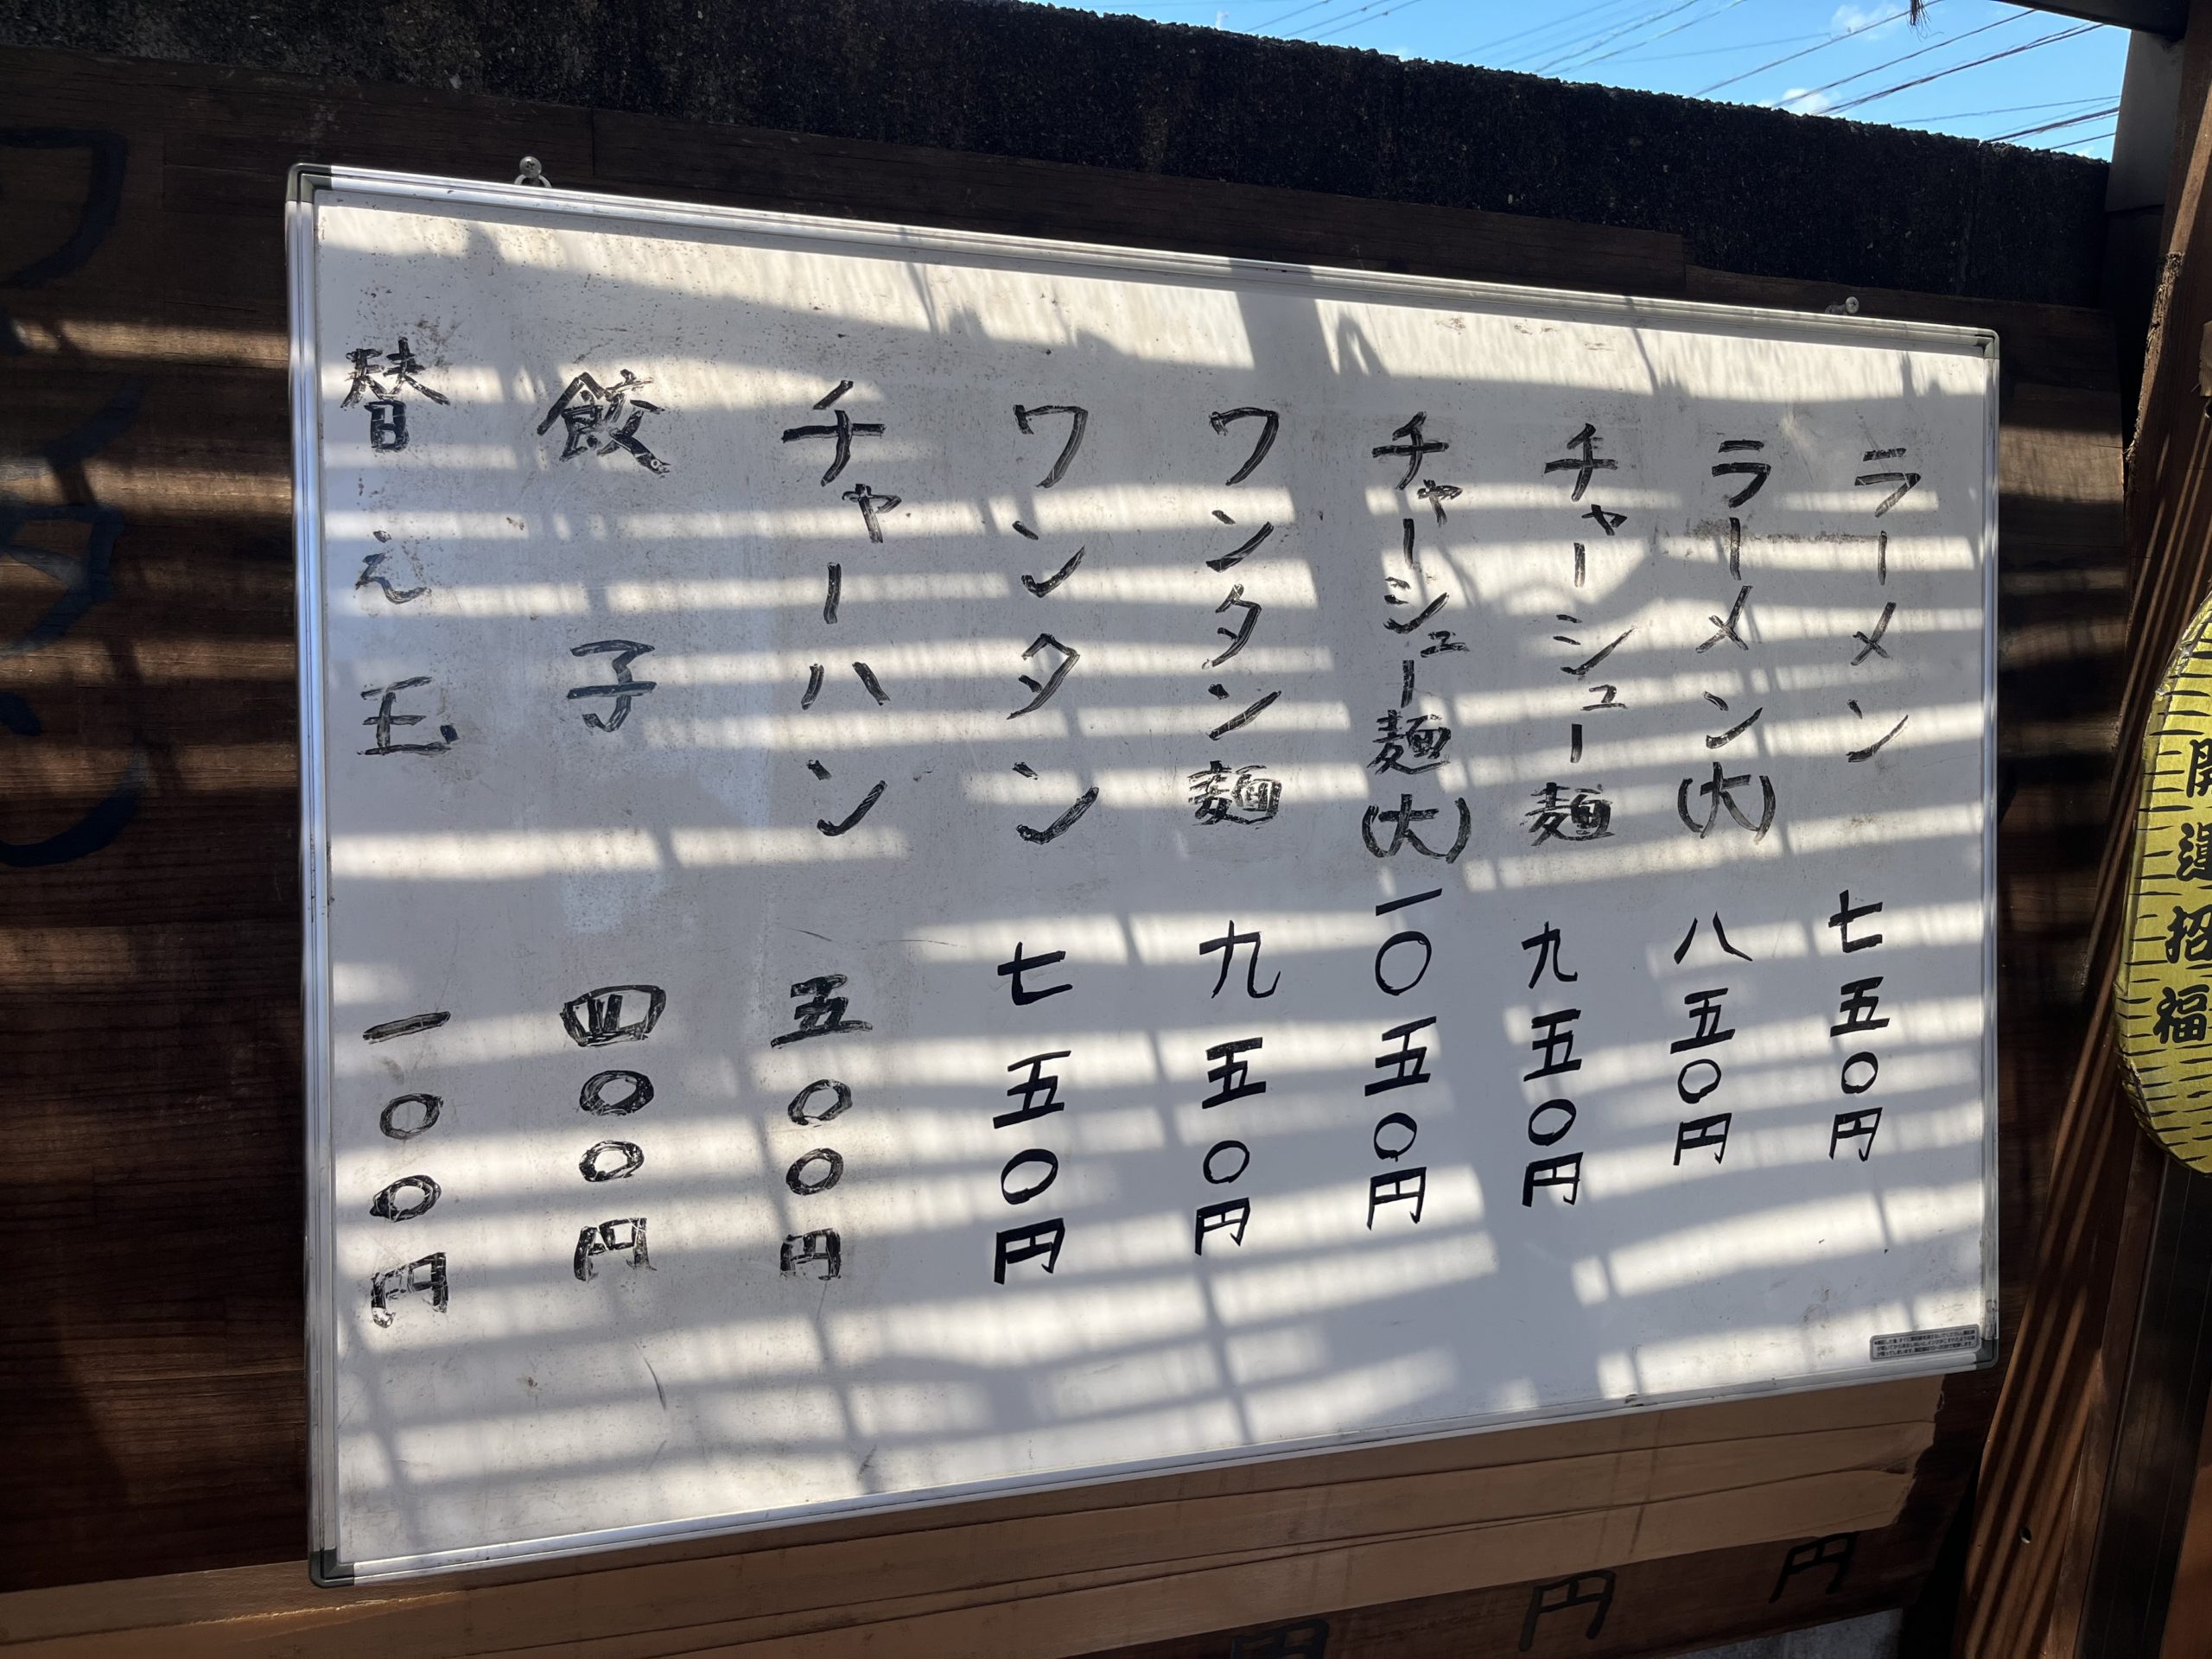 ラーメン 七五〇円
ラーメン(大) 八五〇円
チャーシュー麺 九五〇円
チャーシュー麺(大) 一〇五〇円
ワンタン麺 九五〇円
ワンタン 七五〇円
チャーハン 五〇〇円
餃子 四〇〇円
替え玉 一〇〇円
開運招福
円
円
円